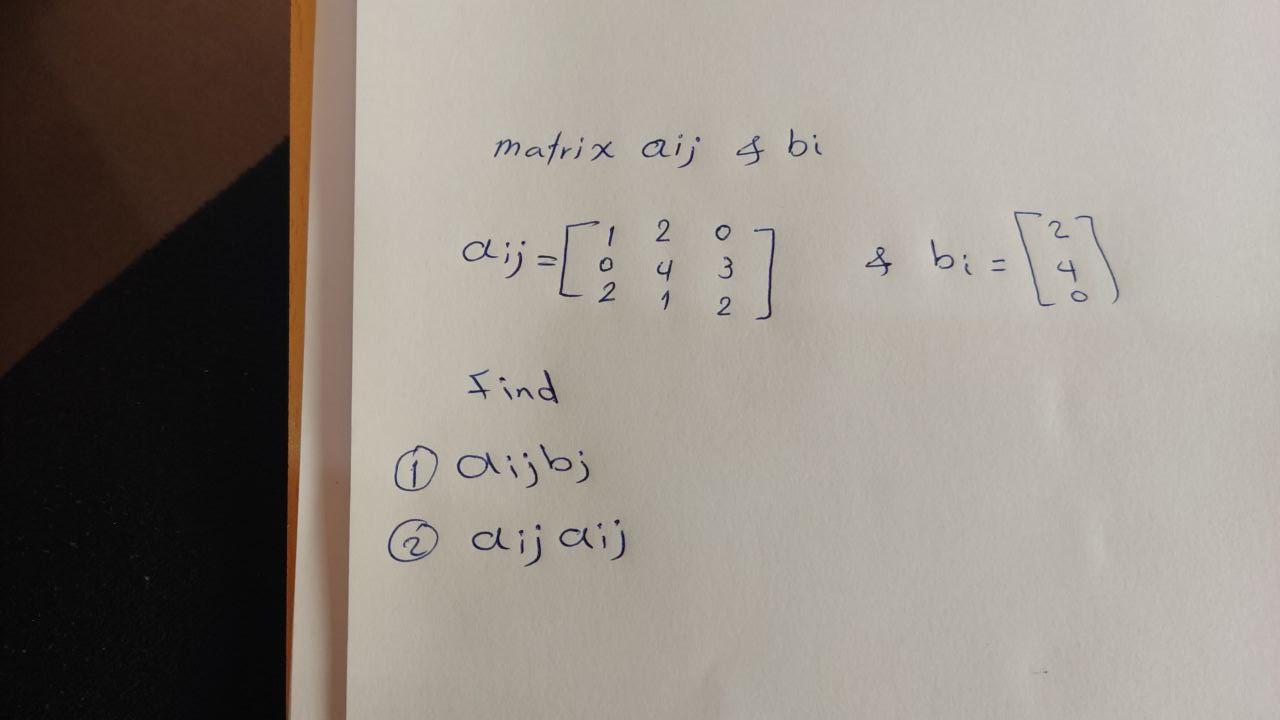 matrix aij & bi
aij = [ 1 2 0 & bi = [ 2
0 4 3 4
2 1 2 ] 0 ]
Find
① aijbj
② aij aij